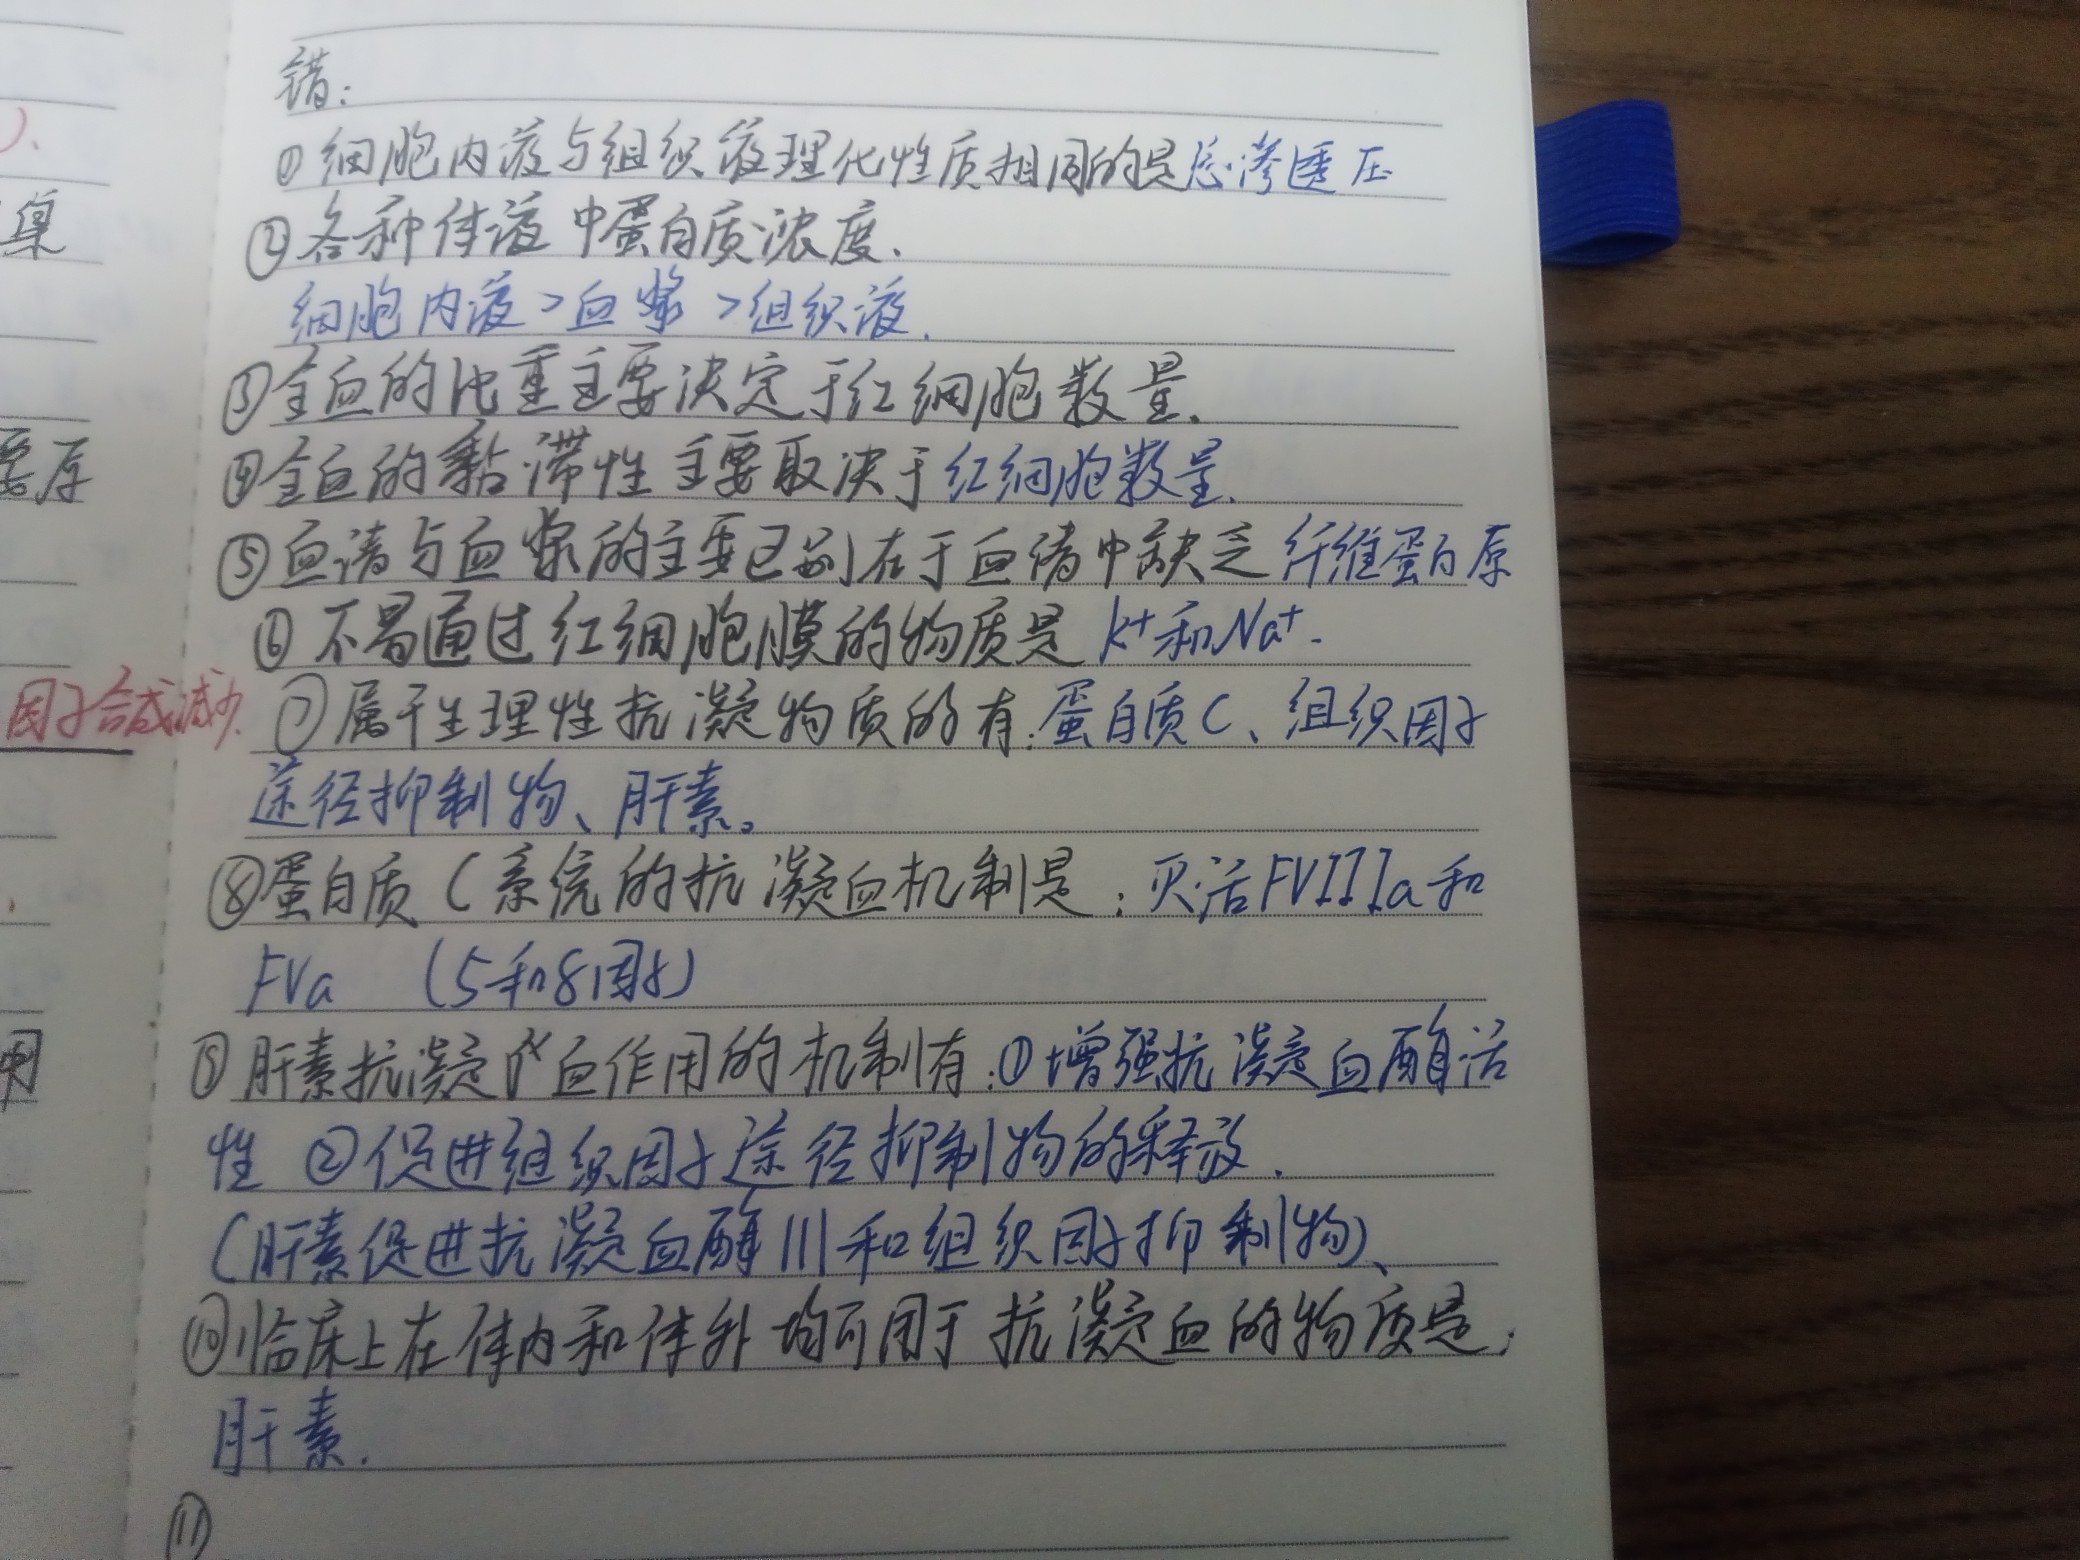 错:
①细胞内液与组织液理化性质相同的是总渗透压
②各种体液中蛋白质浓度.
细胞内液>血浆>组织液.
③全血的比重主要决定于红细胞数量.
④全血的黏滞性主要取决于红细胞数量.
⑤血清与血浆的主要区别在于血清中缺乏纤维蛋白原
⑥不易通过红细胞膜的物质是K+和Na+.
因子合成减少.
⑦属于生理性抗凝物质的有:蛋白质C、组织因子
途径抑制物、肝素。
⑧蛋白质C系统的抗凝血机制是:灭活FVIIIa和
FVa (5和8因子)
⑨肝素抗凝血作用的机制有:①增强抗凝血酶活
性 ②促进组织因子途径抑制物的释放.
(肝素促进抗凝血酶III和组织因子抑制物)、
⑩临床上在体内和体外均可用于抗凝血的物质是:
肝素.
⑪